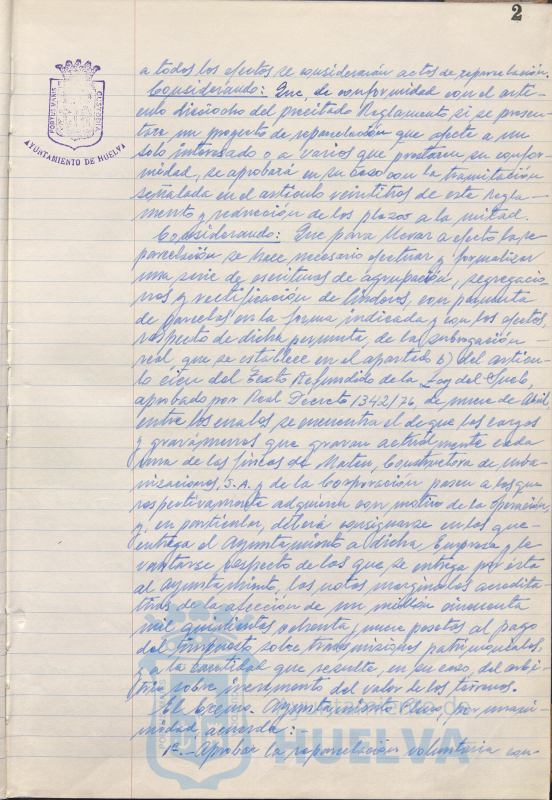 2
a todos los efectos se considerarán actos de reparcelación.
Considerando: Que, de conformidad con el artí-
culo dieciocho del precitado Reglamento, si se presen-
tara un proyecto de reparcelación que afecte a un
solo interesado o a varios que prestaran su confor-
midad, se aprobará en su caso con la tramitación
señalada en el artículo veintitres de este regla-
mento y reducción de los plazos a la mitad.
Considerando: Que para llevar a efecto la re-
parcelación se hace necesario efectuar y formalizar
una serie de escrituras de agrupación, segregacio-
nes y rectificación de linderos, con permuta
de parcelas en la forma indicada y con los efectos,
respecto de dicha permuta, de la subrogación
real que se establece en el apartado b) del artícu-
lo cien del Texto Refundido de la Ley del Suelo,
aprobado por Real Decreto 1342/76, de nueve de Abril
entre los cuales se encuentra el de que las cargas
y gravámenes que gravan actualmente cada
una de las fincas de Constructora de Urba-
nizaciones, S.A. y de la Corporación pasen a las que
respectivamente adquieren con motivo de la operación,
y, en particular, deberá consignarse en los que
entrega el Ayuntamiento a dicha Empresa y le-
vantarse respecto de los que se entrega por ésta
al Ayuntamiento, las notas marginales acredita-
tivas de la afección de un millón cincuenta
mil quinientas ochenta y nueve pesetas al pago
del Impuesto sobre transmisiones patrimoniales,
y a la cantidad que resulte, en su caso, del arbi-
trio sobre incremento del valor de los terrenos.
El Excmo. Ayuntamiento Pleno, por unani-
midad, acuerda:
1º.- Aprobar la reparcelación voluntaria con-
PORTUS MARIS
CUSTODIA
AYUNTAMIENTO DE HUELVA
HUELVA